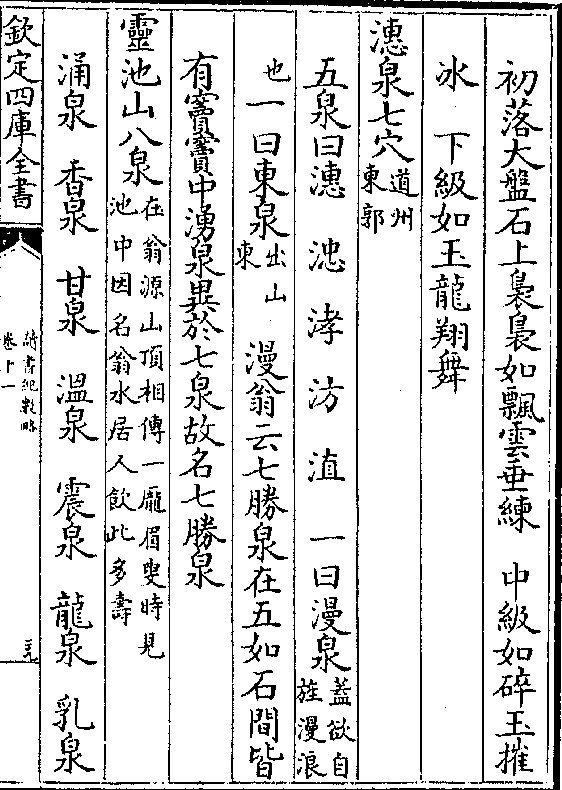 初落大盤石上裊裊如飄雲垂練　中級如碎玉摧
冰　下級如玉龍翔舞
潓泉七穴道州東郭
五泉曰潓　㳘　涍　汸　淔　一曰漫泉蓋欲自旌漫浪
也　一曰東泉出山東　漫翁云七勝泉在五如石間皆
有竇竇中湧泉異於七泉故名七勝泉
靈池山八泉在翁源山頂相傳一龐眉叟時見池中因名翁水居人飲此多壽
涌泉　香泉　甘泉　溫泉　震泉　龍泉　乳泉
欽定四庫全書
讀書紀數略
卷十一